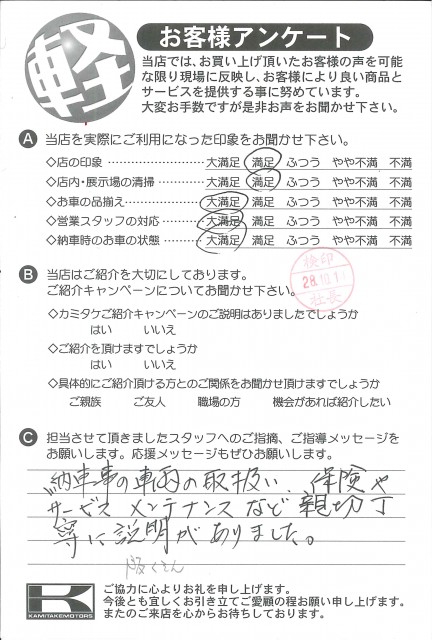 軽
お客様アンケート
当店では、お買い上げ頂いたお客様の声を可能
な限り現場に反映し、お客様により良い商品と
サービスを提供する事に努めています。
大変お手数ですが是非お声をお聞かせ下さい。
A 当店を実際にご利用になった印象をお聞かせ下さい。
◇店の印象 大満足 満足 ふつう やや不満 不満
◇店内・展示場の清掃 大満足 満足 ふつう やや不満 不満
◇お車の品揃え 大満足 満足 ふつう やや不満 不満
◇営業スタッフの対応 大満足 満足 ふつう やや不満 不満
◇納車時のお車の状態 大満足 満足 ふつう やや不満 不満
B 当店はご紹介を大切にしております。
ご紹介キャンペーンについてお聞かせ下さい。
検印
28.10.1
社長
◇カミタケご紹介キャンペーンのご説明はありましたでしょうか
はい いいえ
◇ご紹介を頂けますでしょうか
はい いいえ
◇具体的にご紹介頂ける方とのご関係をお聞かせ頂けますでしょうか
ご親族 ご友人 職場の方 機会があれば紹介したい
C 担当させて頂きましたスタッフへのご指摘、ご指導メッセージを
お願いします。応援メッセージもぜひお願いします。
納車事の車両の取扱い、保険や
サービス メンテナンスなど親切丁
寧に説明がありました。
K
KAMITAKEMOTORS
ご協力に心よりお礼を申し上げます。
今後とも宜しくお引き立てご愛顧の程お願い申し上げます。
またのご来店を心からお待ちしております。